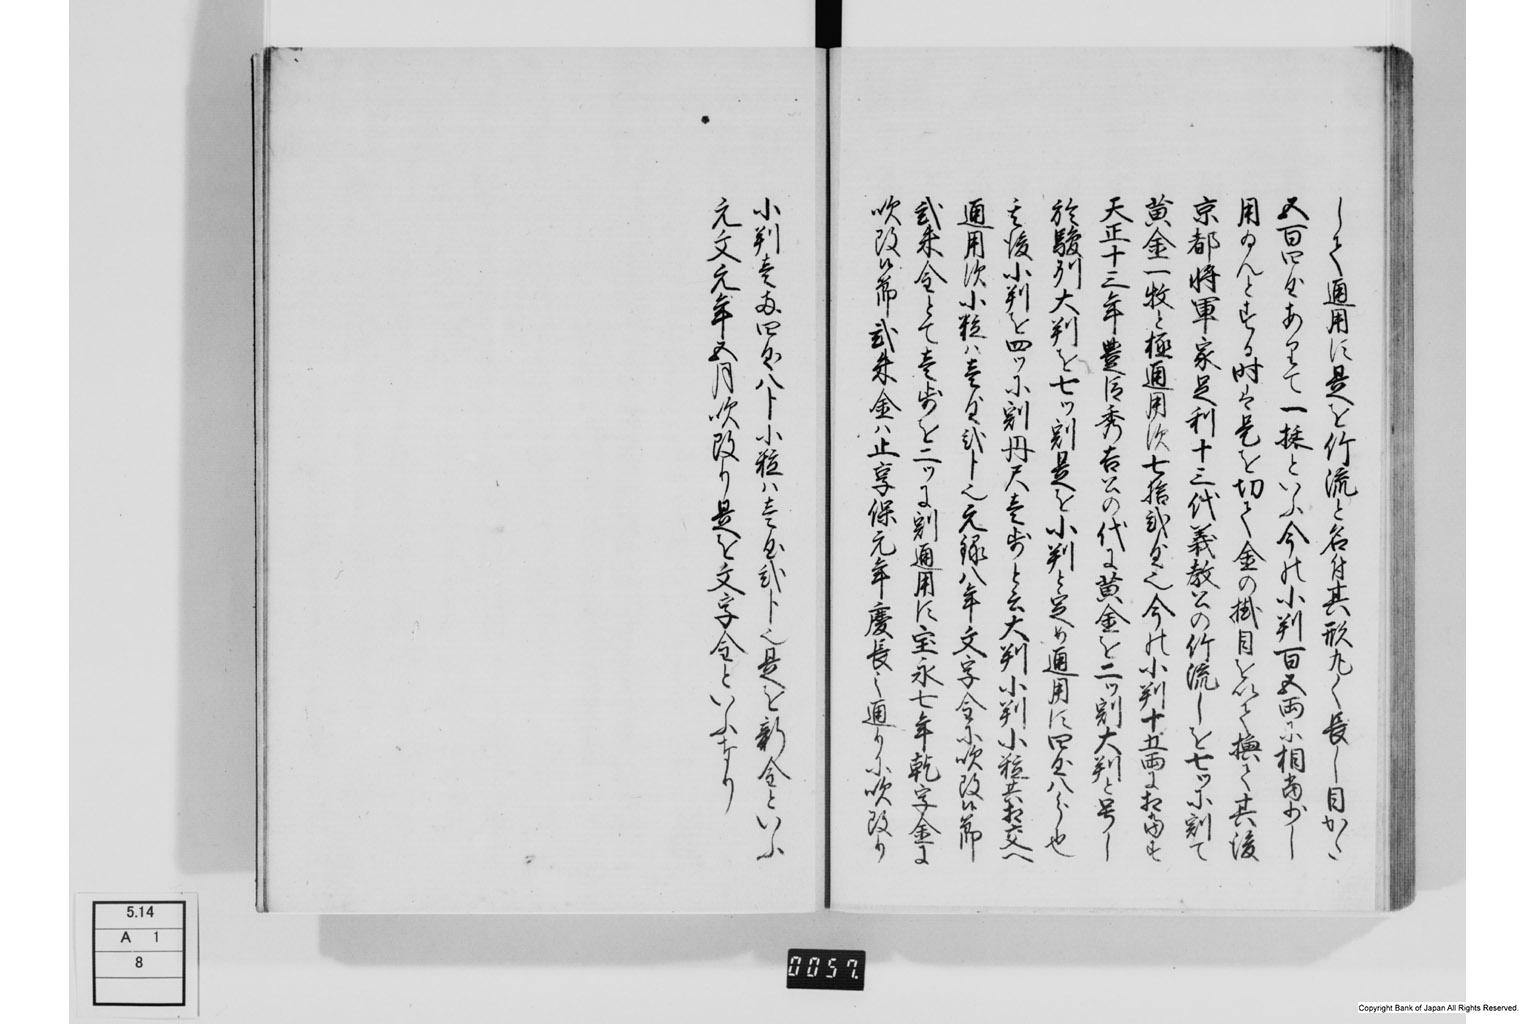 して通用す是を竹流と名付其形丸く長し目かた
五百四匁あまて一抹といふ今の小判百五両に相当れし
用ゐんとする時は是を切て金の掛目を以て換て其後
京都将軍家足利十三代義教公の竹流しを七ツに割て
黄金一枚と極通用す七拾弐匁也今の小判十五両に相当す
天正十三年豊臣秀吉公の代に黄金を二ツ割大判と号し
於駿州大判を七ツ割是を小判と定め通用す四匁八分也
其後小判を四ツに割丹尺壱歩と云大判小判小粒共相交へ
通用す小粒ハ壱匁弐卜也元録八年文字金に吹改候節
弐朱金とて壱歩を二ツに割通用す宝永七年乾字金に
吹改候節弐朱金ハ止享保元年慶長之通りに吹改り
小判壱両四匁八卜小粒ハ壱匁弐卜也是を新金といふ
元文元年五月吹改り是を文字金といふなり
5.14
A 1
8
0057.
Copyright Bank of Japan All Rights Reserved.